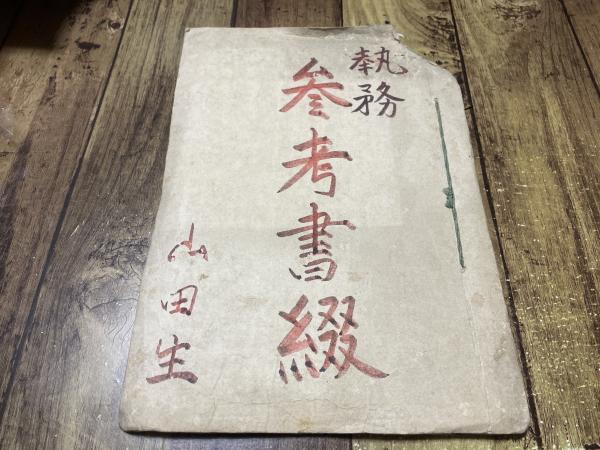 執務
参考書綴
山田生